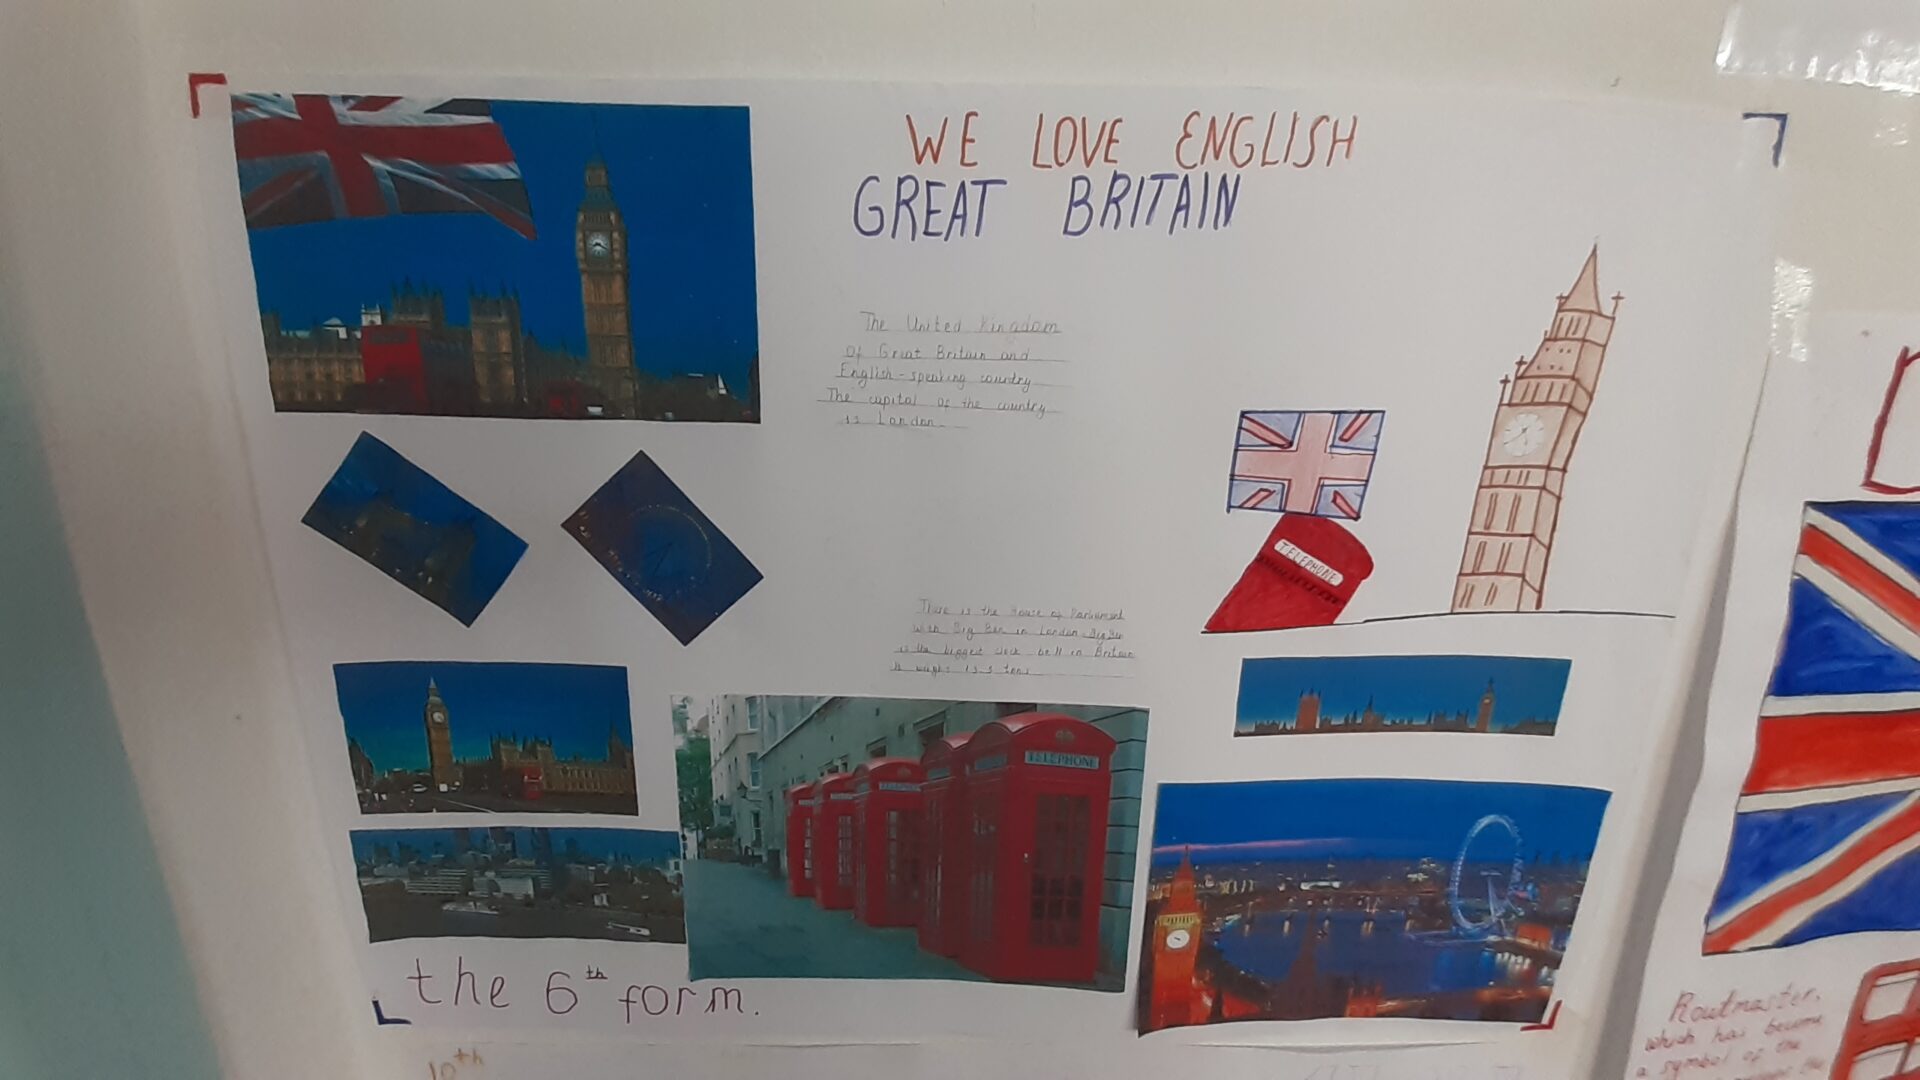 WE LOVE ENGLISH
GREAT BRITAIN
The United Kingdom
Of Great Britain and
English-speaking country
The capital of the country
is London.
TELEPHONE
There is the House of Parliament
with Big Ben in London. Big Ben
is the biggest clock bell in Britain
It weighs 13.5 tons
TELEPHONE
the 6th form.
10th
Routmaster,
which has become
a symbol of the